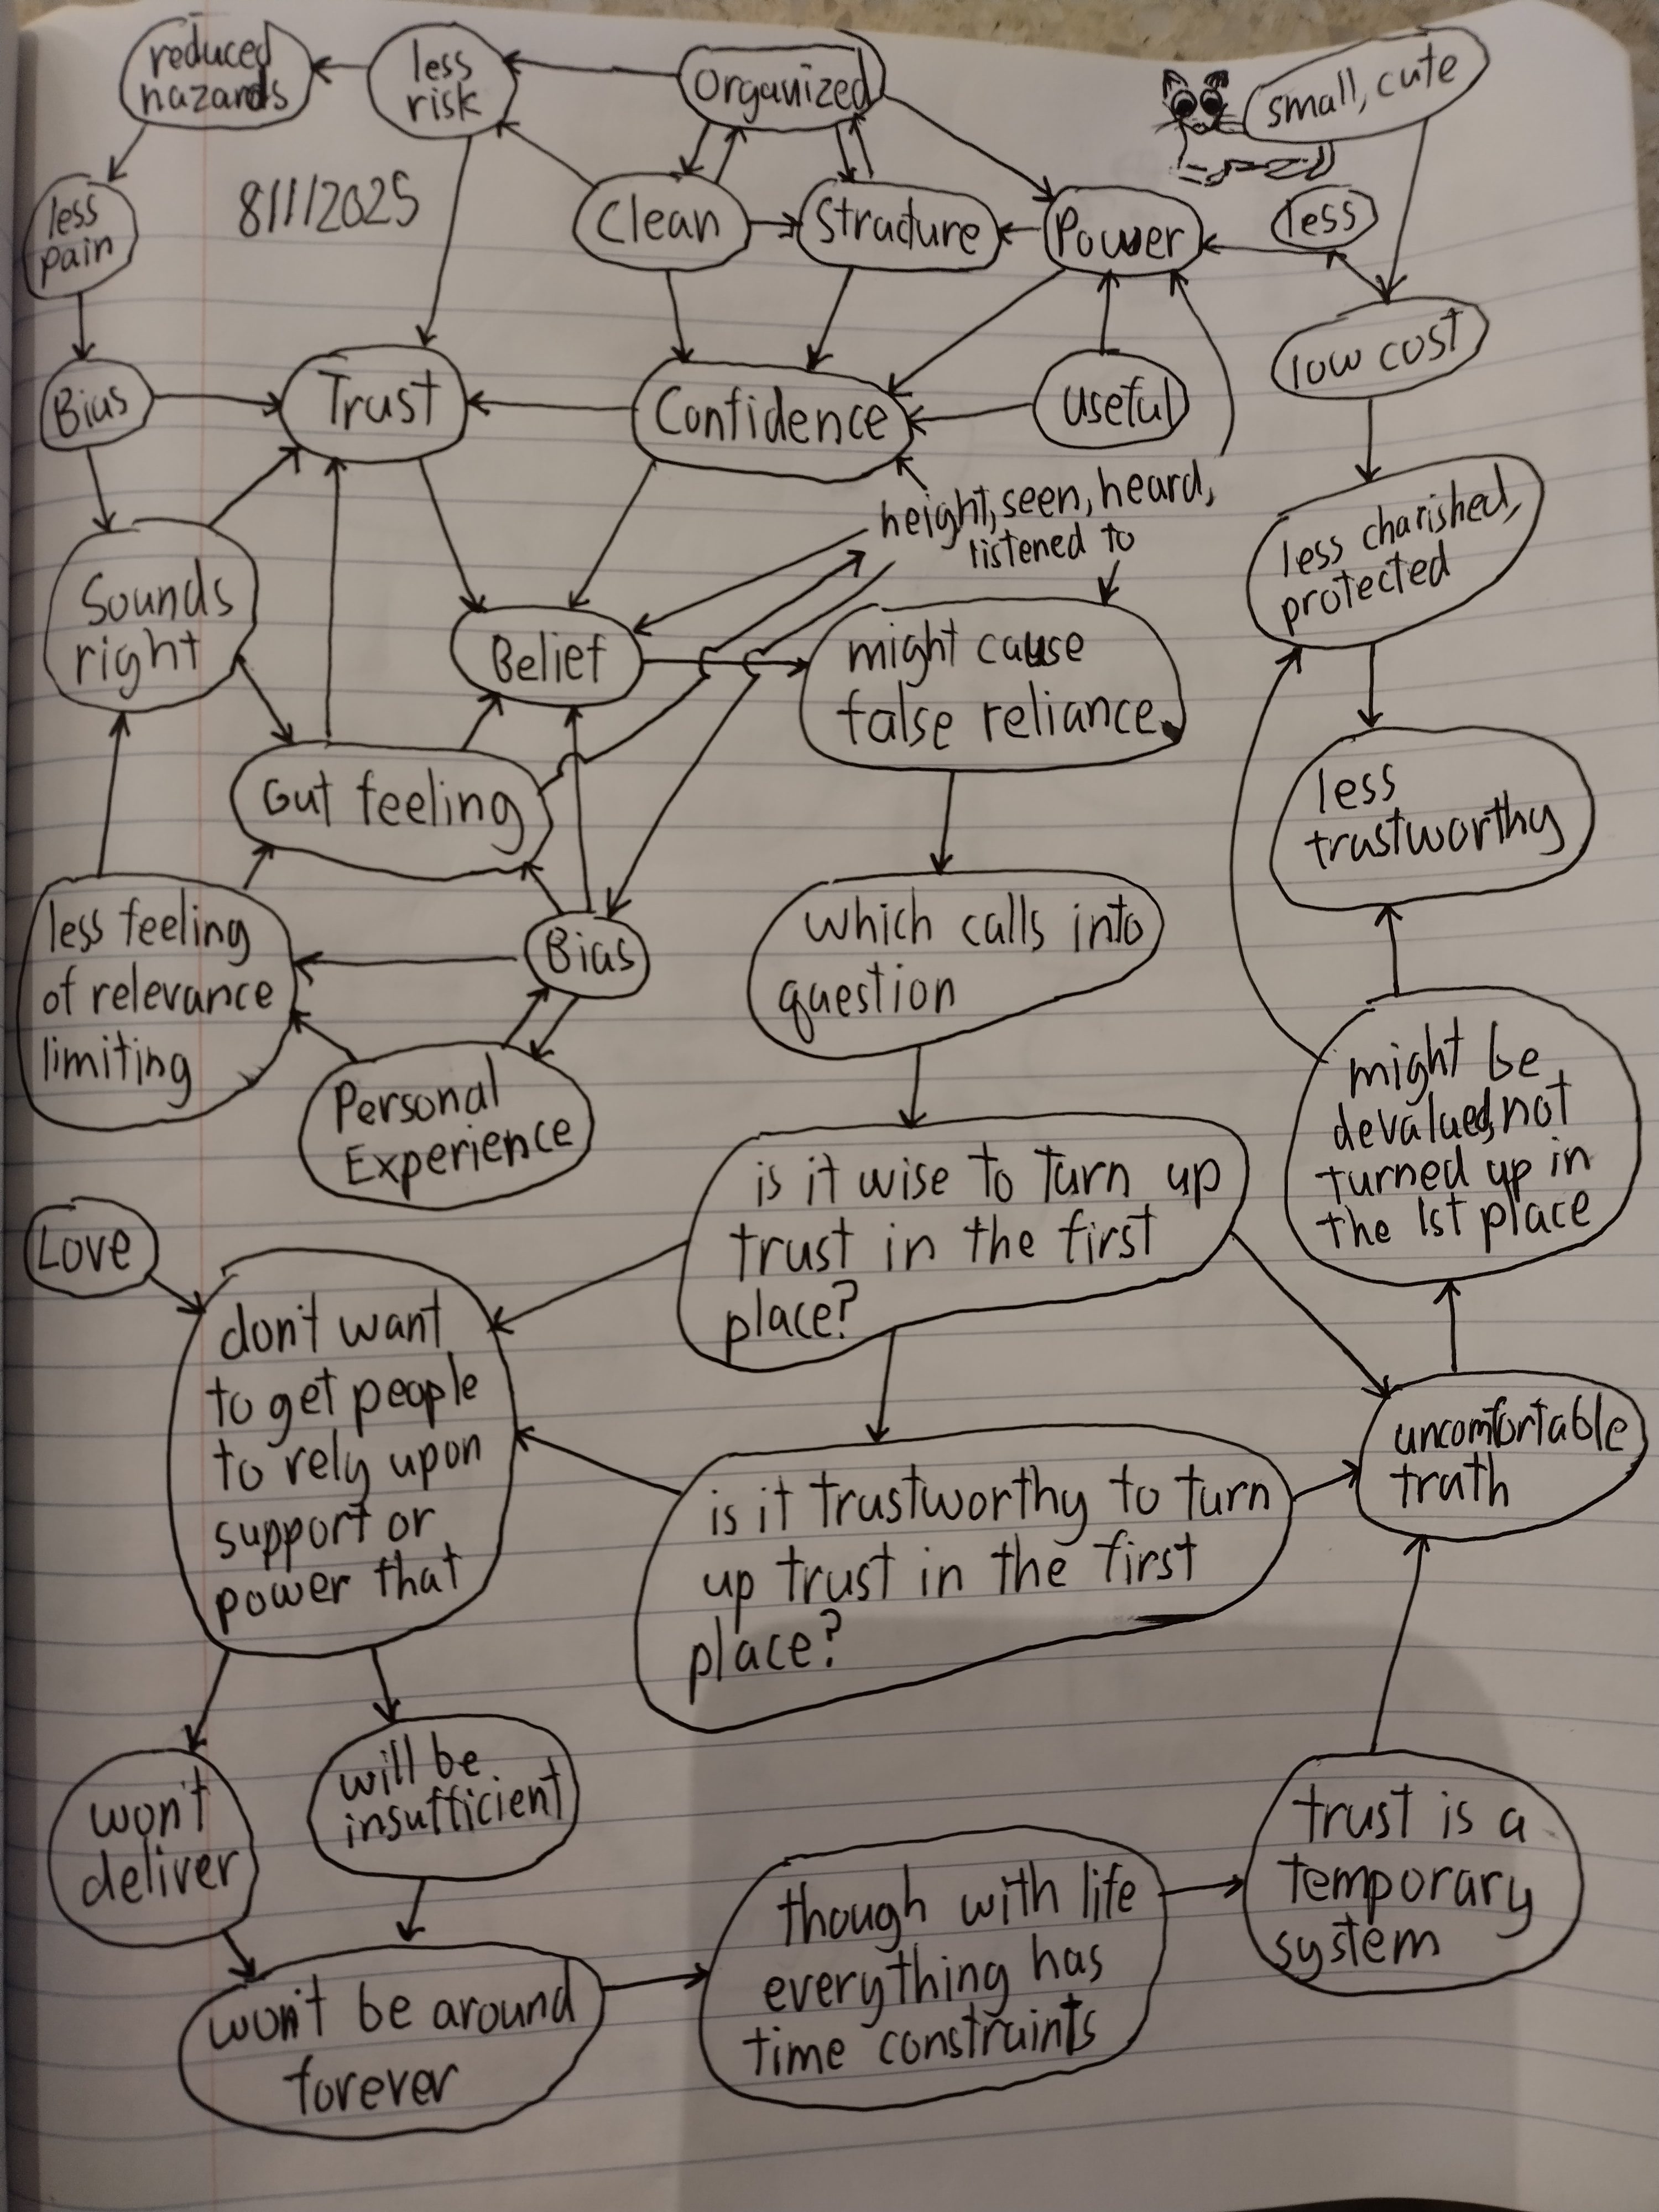 reduced
hazards
less
risk
Organized
small, cute
8/1/2025
less
pain
Clean
Structure
Power
less
low cost
Bias
Trust
Confidence
useful
height, seen, heard,
listened to
less charished,
protected
Sounds
right
Belief
might cause
false reliance
less
trustworthy
Gut feeling
less feeling
of relevance
limiting
Bias
which calls into
question
Personal
Experience
might be
devalued, not
turned up in
the 1st place
is it wise to turn up
trust in the first
place?
Love
don't want
to get people
to rely upon
support or
power that
uncomfortable
truth
is it trustworthy to turn
up trust in the first
place?
won't
deliver
will be
insufficient
trust is a
temporary
system
though with life
everything has
time constraints
won't be around
forever